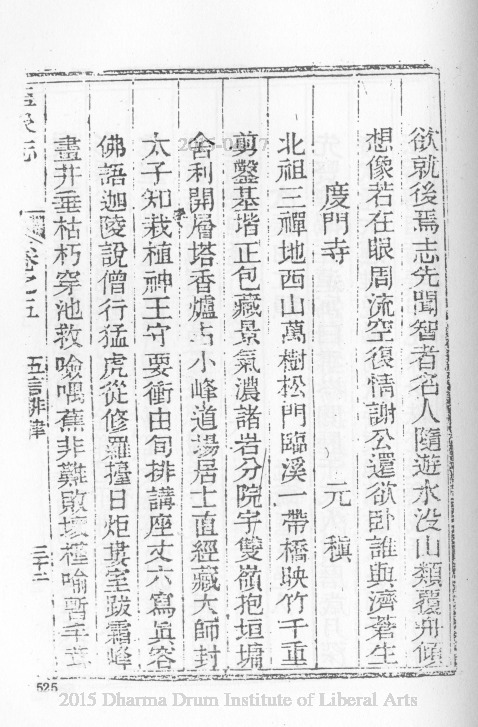 欲就後焉志先聞智者名人隨遊水没山類覆舟傾
想像若在眼周流空復情謝公還欲卧誰與濟蒼生
度門寺 元稹
北祖三禪地西山萬樹松門臨溪一帶橋映竹千重
翦鑿基堦正包藏景氣濃諸岩分院宇雙嶺抱垣墉
舍利開層塔香爐占小峰道場居士直經藏大師封
太子知栽植神王守要衝由旬排講座丈六寫眞容
佛語迦陵說僧行猛虎從修羅擡日炬婁室跋霜峰
盡井垂枯朽穿池救噞喁蕉非難敗壞槿喻暫丰茸
玉泉志 卷之五 五言排律 三十二
525
2015 Dharma Drum Institute of Liberal Arts